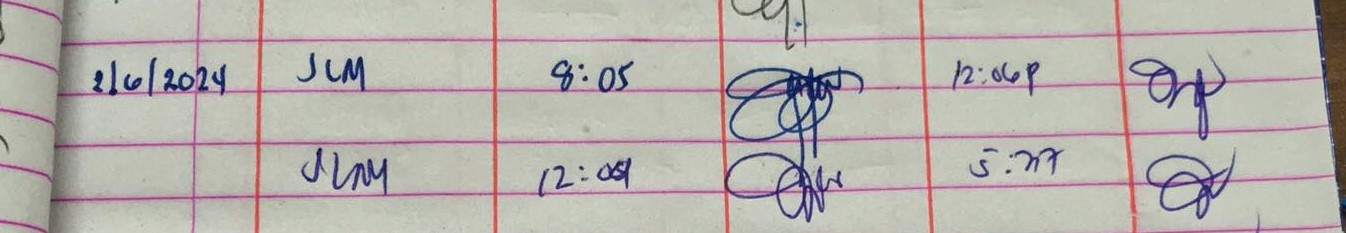 2/6/2024 JLM 8:05 12:06p
JLM 12:09 5:77